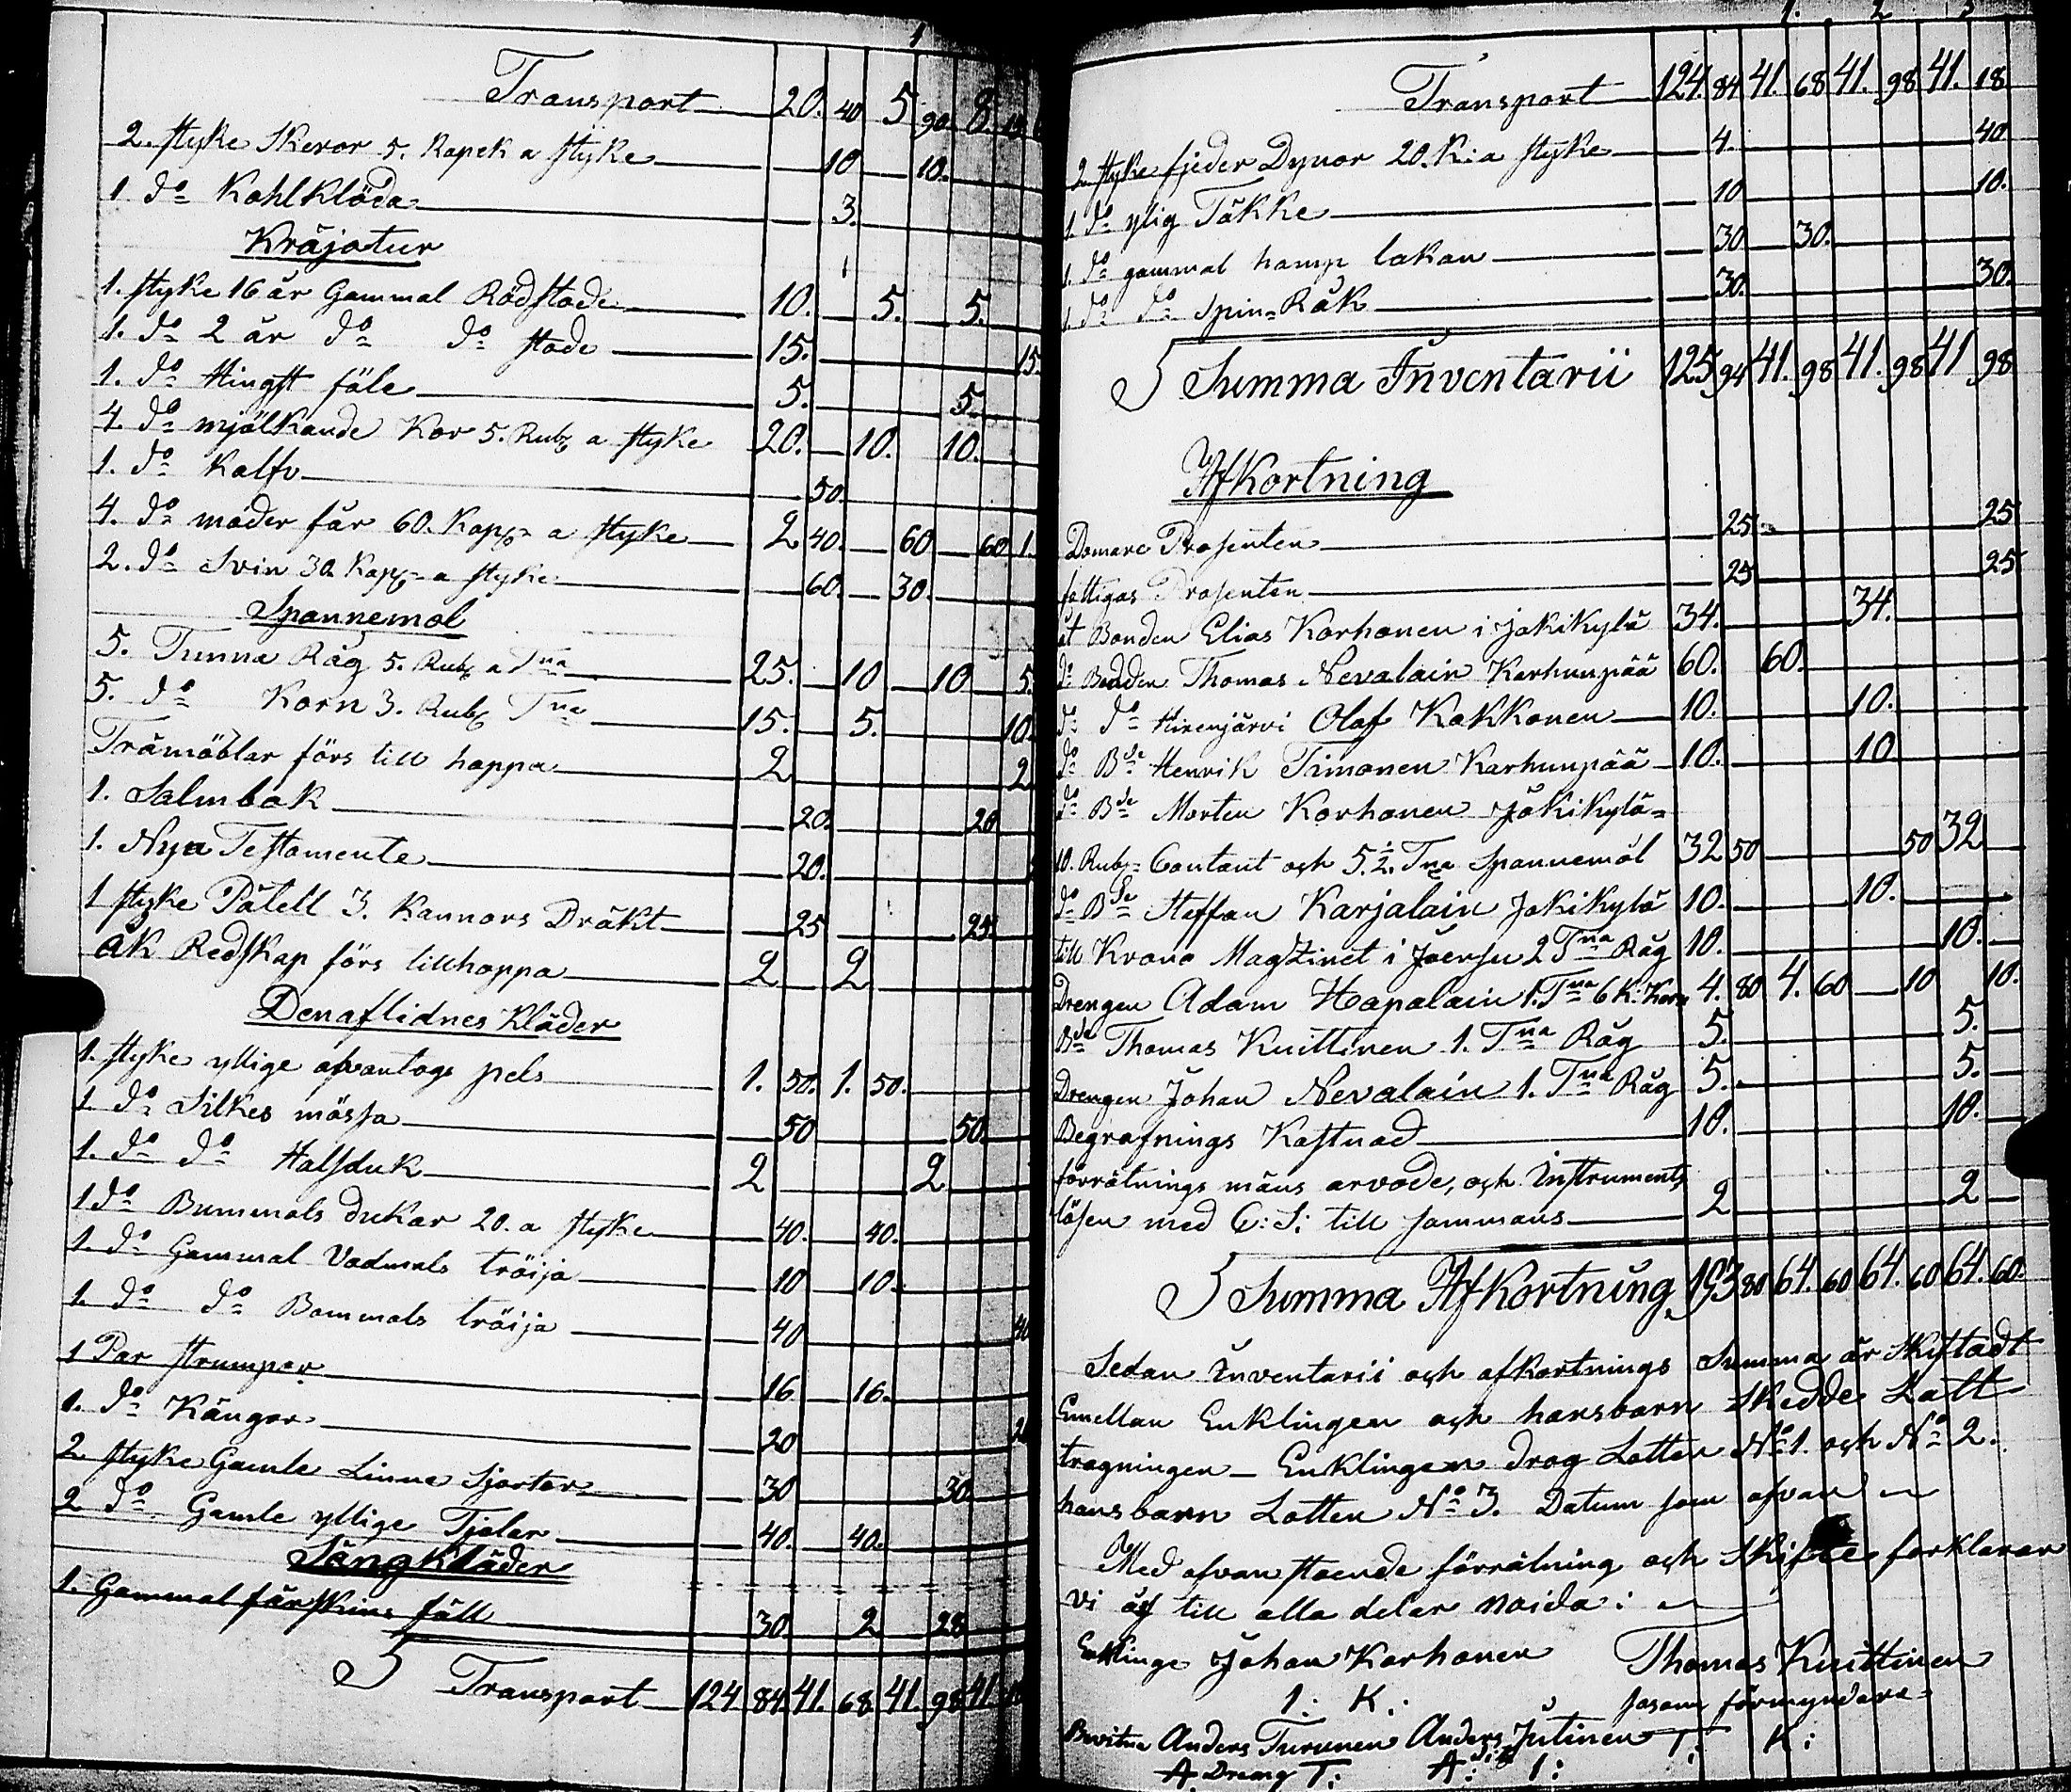 1
Transport 20. 40 5 90 8.
2. styke Skeror 5. Kopek a styke 10 10.
1 do Kohlklöda 3.
Kräjatur
1. styke 16 år Gammal Rödstode 10. 5. 5.
1. do 2 år do do stode 15. 15.
1. do Hingst föle 5. 5.
4. do mjälkande Kor 5. Rub a styke 20. 10. 10.
1. do Kalfv 50.
4. do möder får 60. Kop a styke 2 40. 60 60 1.
2. do Svin 30. Kop a styke 60. 30.
Spannemol
5. Tunna Råg 5. Rub a Tna 25. 10 10 5.
5. do Korn 3. Rub Tna 15. 5. 10.
Trämöblar förs till hoppa 2 2
1. Salmbok 20. 20
1. Nya Testamente 20.
1 styke Pätell 3. Kannors Dräkt 25 25
åk Redskap förs tillhoppa 2 2
Denaflidnes Kläder
1. styke yllige afvantogs pels 1. 50. 1. 50.
1. do Silkes mössa 50 50.
1. do do Halsduk 2 2
1 do Bummols dukar 20. a styke 40. 40.
1. do Gammal Vadmals tröija 10 10.
1. do do Bommols tröija 40 40
1 Par strumpor 16 16.
1. do Kängor 20 20
2 styke Gamle Linne Sjortor 30 30.
2 do Gamle yllige Tjolar 40. 40.
Sängkläder
1. Gammal fårskins fäll 30. 2 28
S Transport 124 84. 41. 68 41. 98 41.
1. 2 3
Transport 124. 84 41. 68 41. 98 41. 18
2. styke fjeder Dynor 20. K: a styke 4. 40.
1. do ylig Täkke 10 10.
1. do gammal hamp lakan 30. 30.
1. do do Spin-Råk 30. 30.
S Summa Inventarii 125 94 41. 98 41. 98 41 98
Afkortning
Domare Prosenten 25 25
fattigas Prosenten 25 25
åt Bonden Elias Korhonen i Jokikylä 34. 34.
do Bonden Thomas Nevalain Karhunpää 60. 60.
do do Hirenjärvi Olof Kokkonen 10. 10.
do Bde Henrik Timonen Karhunpää 10. 10
do Bde Morten Korhonen Jokikylä
10. Rub Contant och 5.½. Tna Spannemål 32 50 50 32
do Bde Staffan Karjalain Jokikylä 10. 10.
till Krono Magzinet i Joensu 2 Tna Råg 10. 10.
Drengen Adam Hapalain 1. Tna 6 K: Korn 4. 80 4. 60 10 10.
Bde Thomas Knittinen 1. Tna Råg 5. 5.
Drengen Johan Nevalain 1. Tna Råg 5. 5.
Begrafnings Kostnad 10. 10.
förrätnings mäns arvode, och Instruments
lösen med C: S: till sammans 2 2
S Summa Afkortning 193 80 64. 60 64. 60 64. 60.
Sedan Inventarii och afkortnings Summa är Skiftadt
Emellan Enklingen och hansbarn Skedde Latt
tragningen – Enklingen drog Lotten No 1. och No 2.
hans barn Lotten No 3. Datum som ofvan
Med ofvan stoende förrätning och Skiftes forklarar
Vi oss till alla delar noida:
Enklinge Johan Korhonen Thomas Knittinen
I: K: sosom förmyndare
Bevitna Anders Turunen Anders Jutinen T: K:
A Dreng T: A: I: